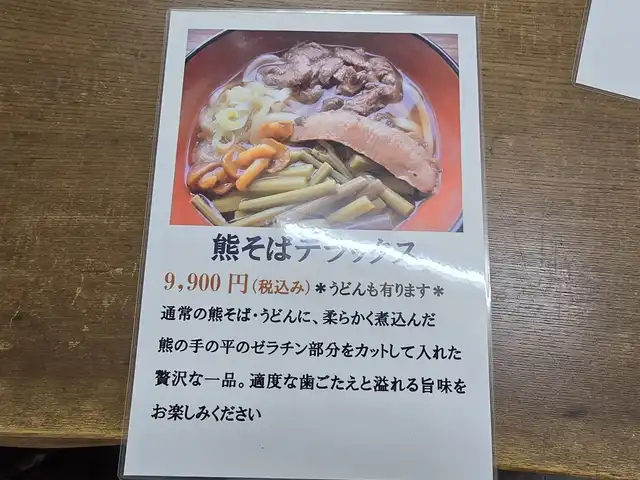 熊そばデラックス
9,900円(税込み)＊うどんも有ります＊
通常の熊そば・うどんに、柔らかく煮込んだ
熊の手の平のゼラチン部分をカットして入れた
贅沢な一品。適度な歯ごたえと溢れる旨味を
お楽しみください